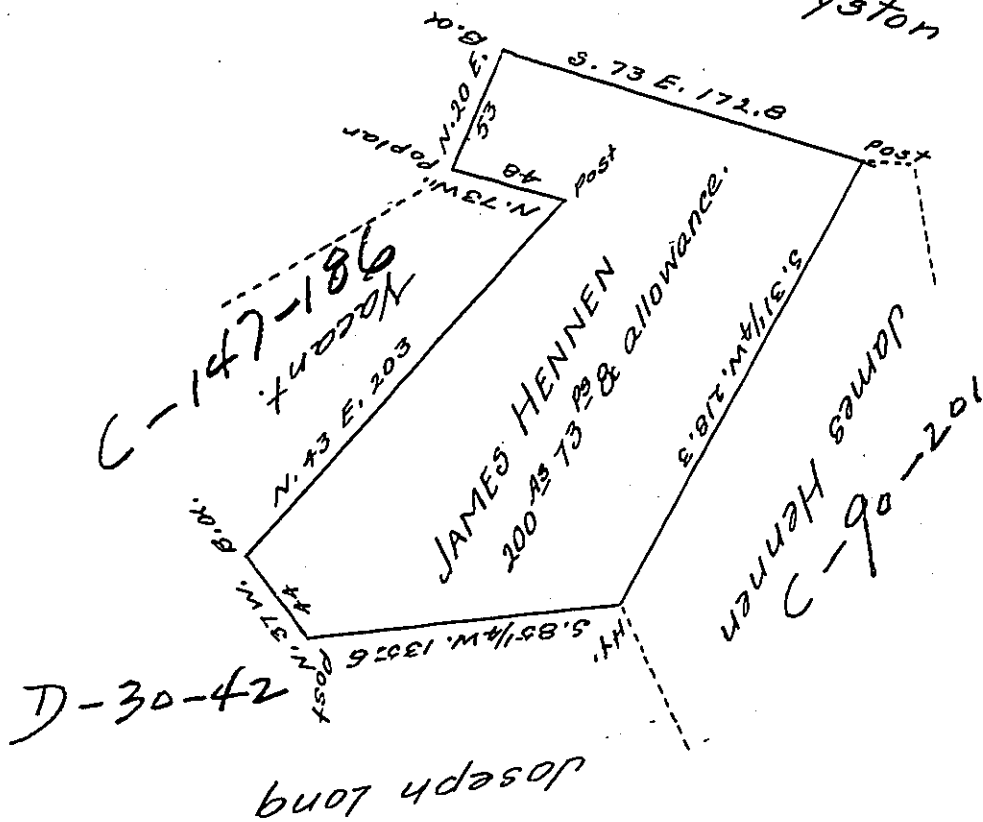 yston
B.O.
S. 73 E. 172.8
N. 20 E.
53
Poplar
N. 73 W.
48
Post
Post
C-147-186
Vacant.
N. 43 E. 203
JAMES HENNEN
200 As 73 Ps & allowance.
S. 31 1/4 W. 218.3
James Hennen
C-90-201
B.O.
N. 37 W.
44
Post
S. 85 1/4 W. 135.6
"HY"
D-30-42
Joseph Long